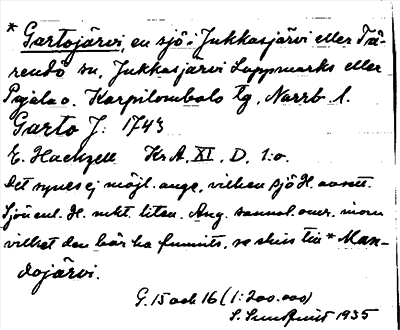 * Gartojärvi, en sjö i Jukkasjärvi eller Tä-
rendö sn, Jukkasjärvi Lappmarks eller
Pajala o. Korpilombolo tg, Norrb. l.
Garto J: 1743
E. Hackzell Kr. A. XI, D, 1:o.
Det synes ej möjl. ange, vilken sjö H. avsett.
Sjön enl. H. mkt. liten. Ang. sannol. omr. inom
vilket den bör ha funnits, se skiss till * Man-
dojärvi.
G. 15 och 16 (1:200.000)
S. Sundqvist 1935